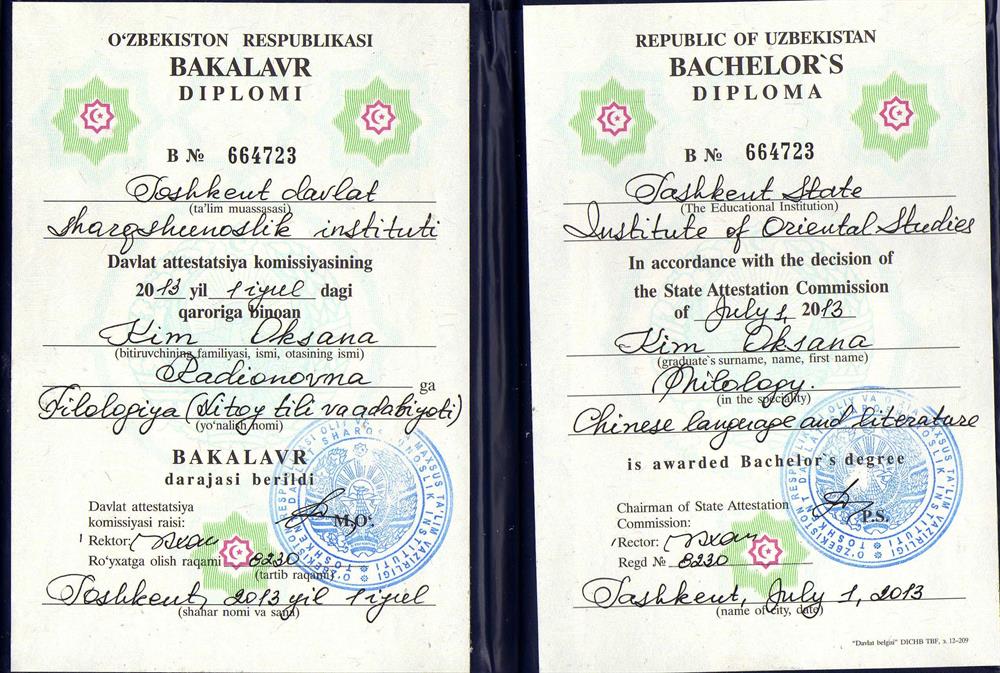 O‘ZBEKISTON RESPUBLIKASI
BAKALAVR
DIPLOMI
B № 664723
Toshkent davlat
(ta'lim muassasasi)
sharqshunoslik instituti
Davlat attestatsiya komissiyasining
2013 yil 1 iyul dagi
qaroriga binoan
Kim Oksana
(bitiruvchining familiyasi, ismi, otasining ismi)
Radionovna ga
Filologiya (Xitoy tili va adabiyoti)
(yo‘nalish nomi)
BAKALAVR
darajasi berildi
Davlat attestatsiya
komissiyasi raisi:
M.O‘.
Rektor:
Ro‘yxatga olish raqami 8230
(tartib raqami)
Toshkent 2013 yil 1 iyul
(shahar nomi va sana)
REPUBLIC OF UZBEKISTAN
BACHELOR`S
DIPLOMA
B № 664723
Tashkent State
(The Educational Institution)
Institute of Oriental Studies
In accordance with the decision of
the State Attestation Commission
of July 1, 2013
Kim Oksana
(graduate`s surname, name, first name)
Philology.
(in the speciality)
Chinese language and literature
is awarded Bachelor`s degree
Chairman of State Attestation
Commission:
P.S.
Rector:
Regd № 8230
Tashkent, July 1, 2013
(name of city, date)
"Davlat belgisi" DICHB TBF, z. 12-209